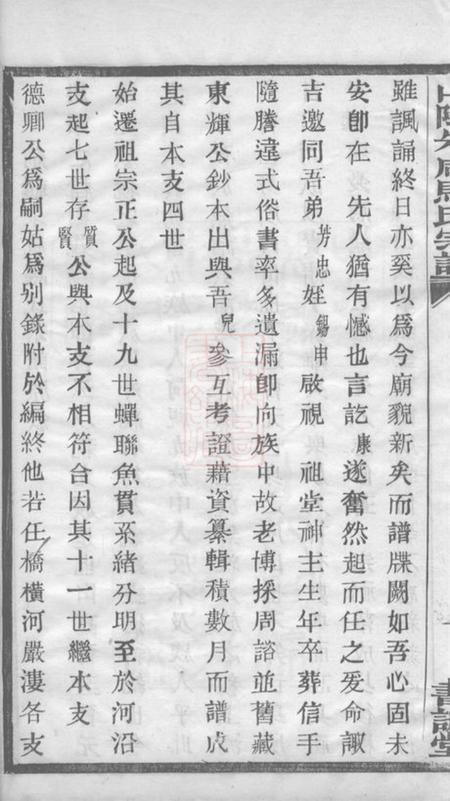 雖諷誦終日亦奚以爲今廟貌新矣而譜牒闕如吾心固未
安卽在 先人猶有憾也言訖康遂奮然起而任之爰命諏
吉邀同吾弟芳忠姪錫申啟視 祖堂神主生年卒葬信手
隨謄違式俗書率多遺漏卽向族中故老博採周諮並舊藏
東輝公鈔本出與吾兒參互考證藉資纂輯積數月而譜成
其自本支四世
始遷祖宗正公起及十九世蟬聯魚貫系緒分明至於河沿
支起七世存質賢公與本支不相符合因其十一世繼本支
德卿公爲嗣姑爲別錄附於編終他若任橋橫河嚴漊各支
馬氏宗譜
書讀堂